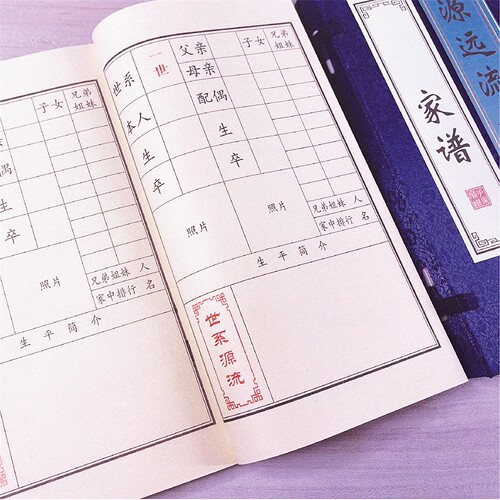 子女 兄弟姐妹
偶
生
卒
照片
兄弟姐妹 人
家中排行 名
生平简介
世系 一世 父亲 子女 兄弟姐妹
母亲
本人 配偶
生 生
卒 卒
照片 照片
兄弟姐妹 人
家中排行 名
生平简介
世系源流
家谱
源远流